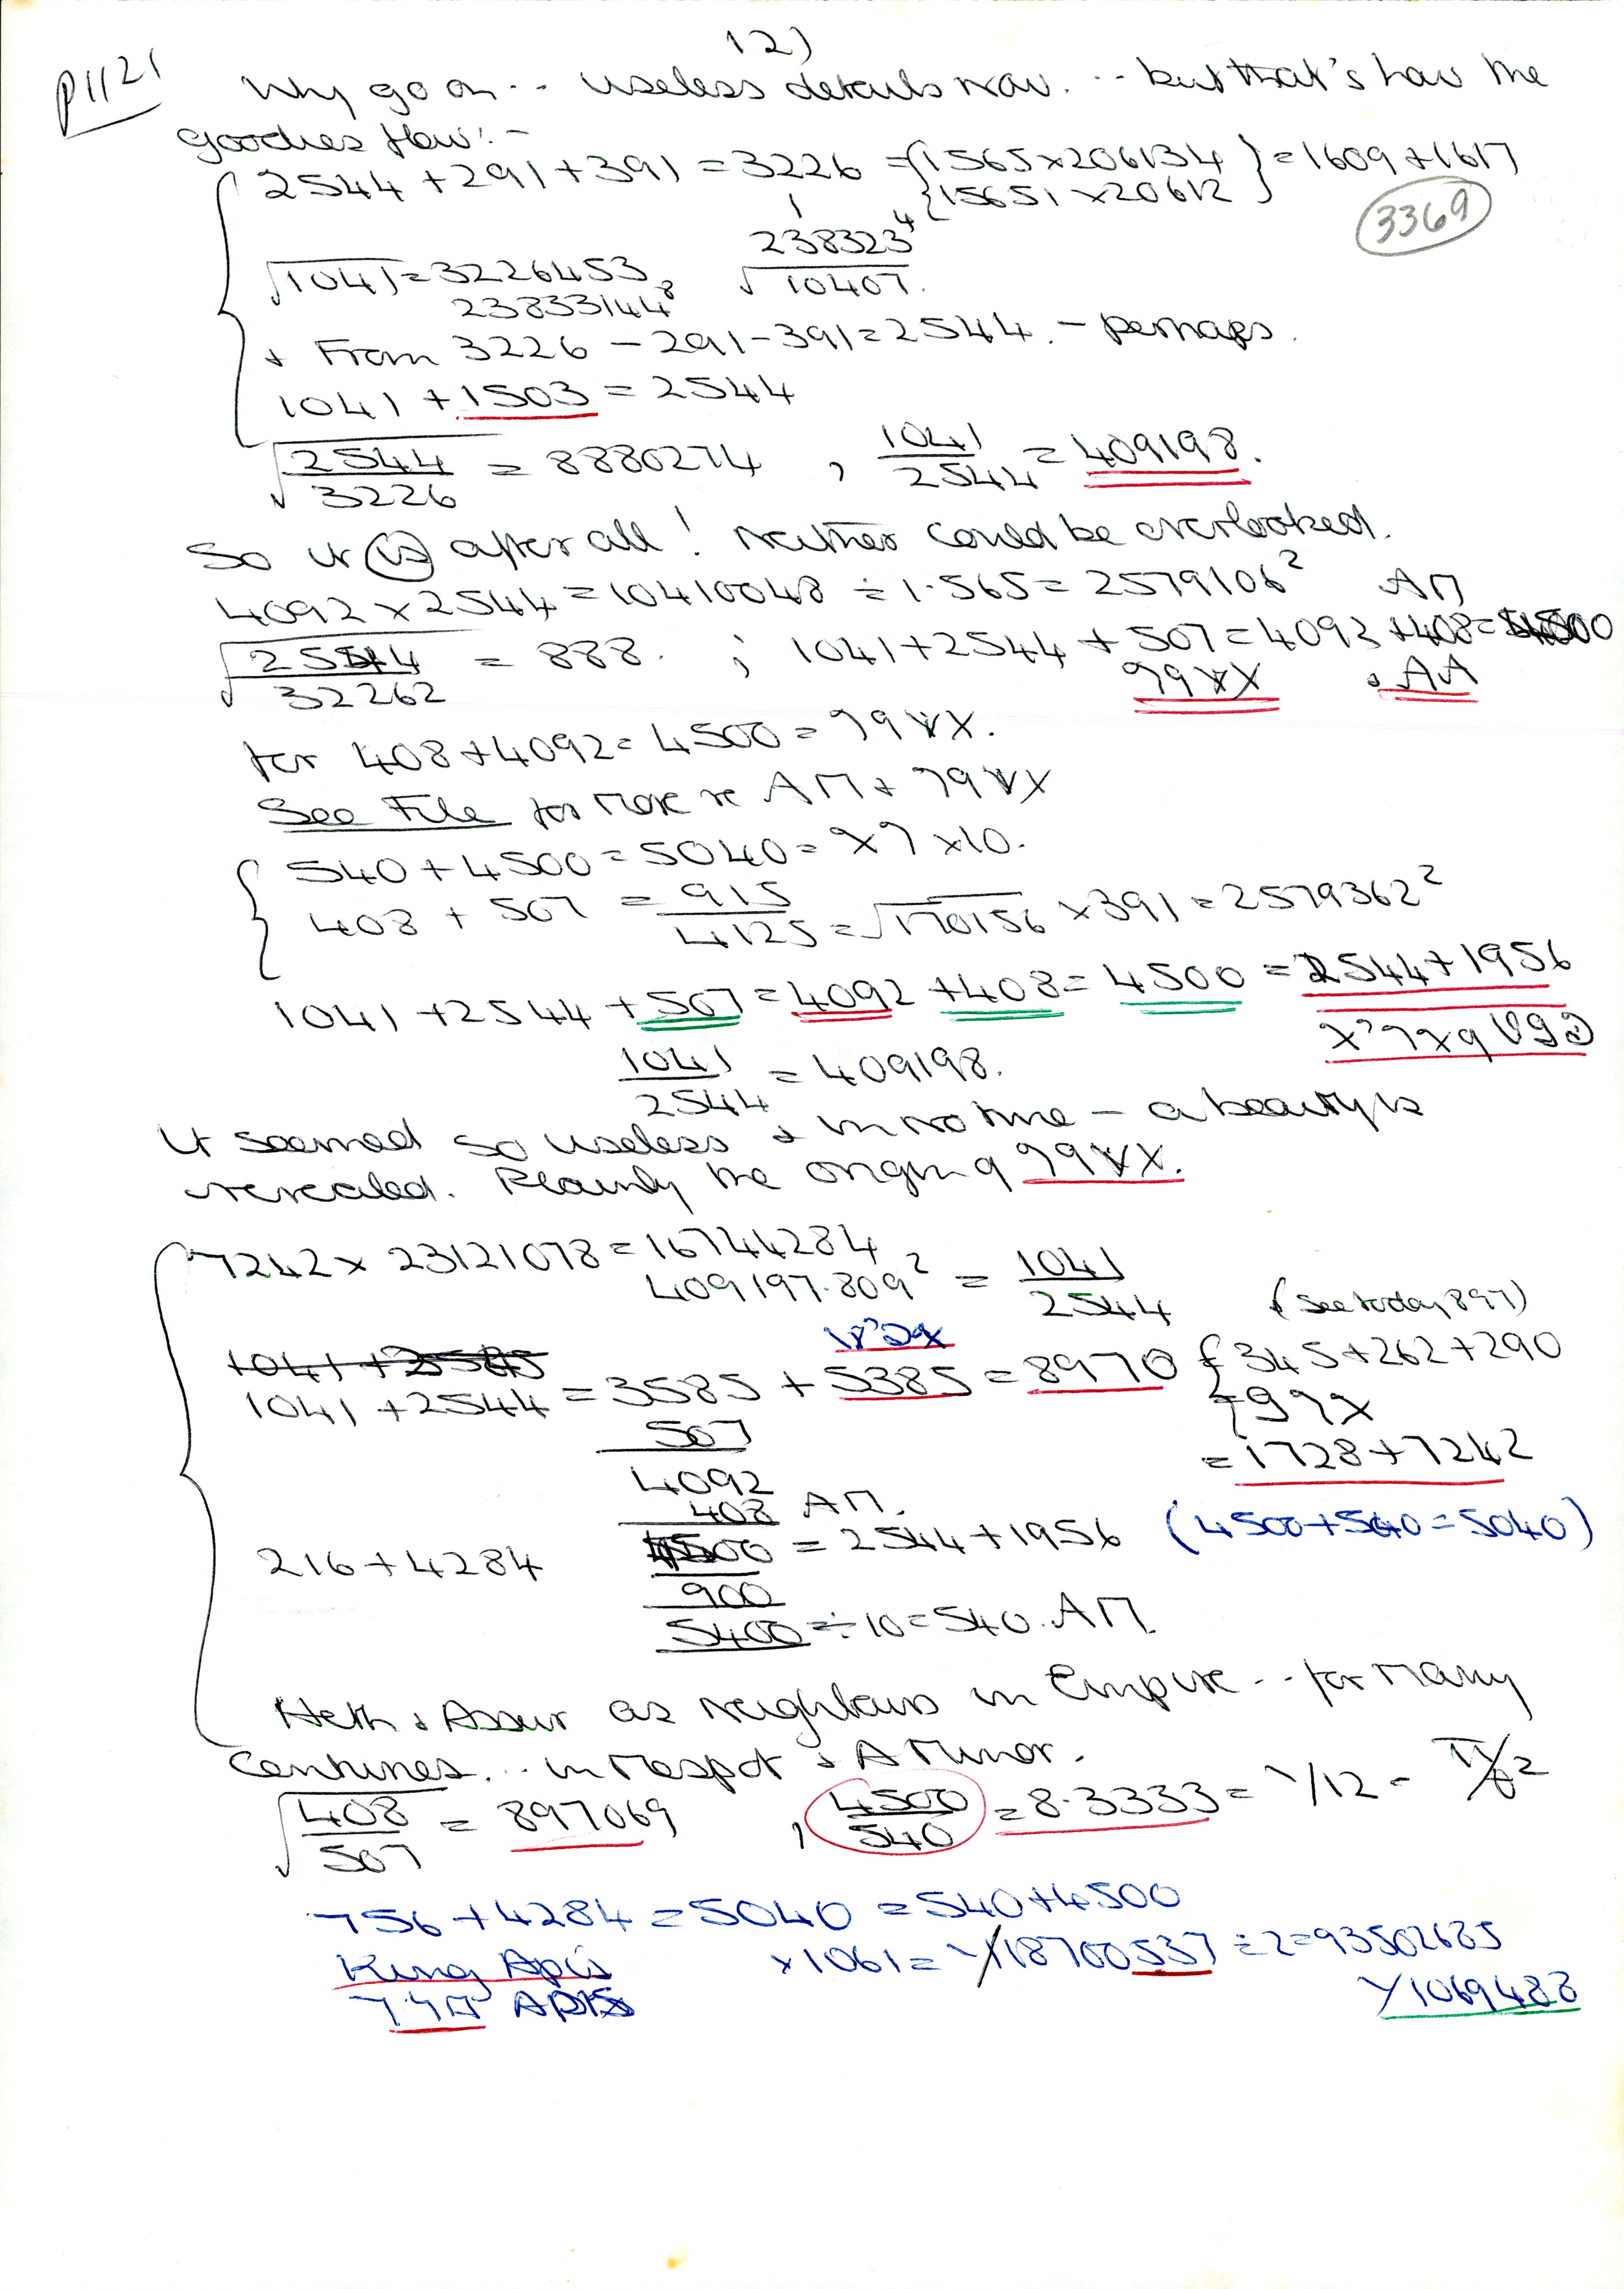 12)
P1121
Why go on.. useless details now. .. but that's how the
goodies flow:-
2544 + 291 + 391 = 3226 = {1565 x 206134 } = 1609 + 1617
{15651 x 20612 }
3369
√1041 = 3226453, 238323⁴
23833144⁸ √10407.
+ From 3226 - 291 - 391 = 2544. - perhaps.
1041 + 1503 = 2544
√2544/3226 = 8880274 , 1041/2544 = 409198.
So it (is) after all! Neither could be overlooked.
4092 x 2544 = 10410048 ÷ 1.565 = 2579106² ΑΠ
√2544/32262 = 888. ; 1041 + 2544 + 507 = 4092 + 408 = 4500
for 408 + 4092 = 4500 =
See File for more re ΑΠ +
540 + 4500 = 5040 = x 7 x 10.
408 + 507 = 915/4125 = √170156 x 391 = 2579362²
1041 + 2544 + 507 = 4092 + 408 = 4500 = 2544 + 1956
1041/2544 = 409198.
It seemed so useless + in no time - a beauty is
revealed. Plainly the origin of
7242 x 23121078 = 16744284
409197.809² = 1041/2544 (see today 897)
1041 + 2544 = 3585 + 5385 = 8970 { 345 + 262 + 290
507
= 1728 + 7242
4092
408 ΑΠ.
216 + 4284 4500 = 2544 + 1956 (4500 + 540 = 5040)
900
5400 ÷ 10 = 540. ΑΠ
Heth + Assur as neighbours in Empire .. for many
Centuries... in Mespot + A Minor.
√408/507 = 897069 , 4500/540 = 8.3333 = Y/12 -
756 + 4284 = 5040 = 540 + 4500
King Apis x 1061 = Y/18700537 ÷ 2 = 93502685
APIS Y1069488